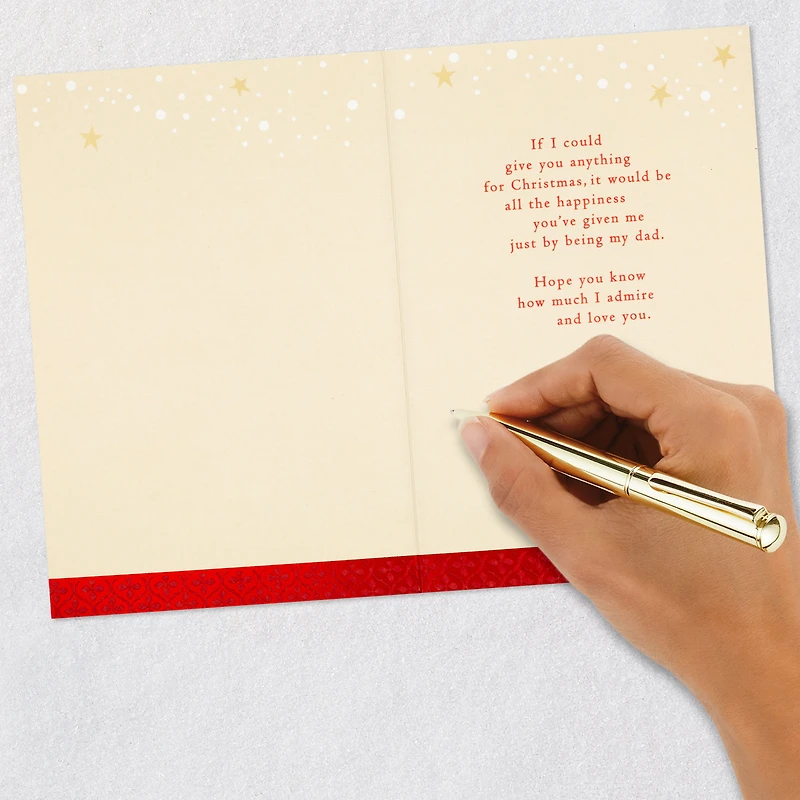 If I could
give you anything
for Christmas, it would be
all the happiness
you've given me
just by being my dad.
Hope you know
how much I admire
and love you.